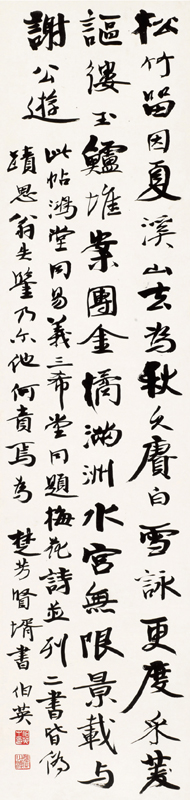 松竹留因夏溪山去為秋久賡白雪詠更度采菱
謳縷玉鱸堆案團金橘滿洲水宮無限景載与
謝公遊
此帖鴻堂同易義三希堂同題梅花詩並列二書皆偽
蹟思翁失鑒乃尔他何責焉為 楚芳賢壻書 伯英